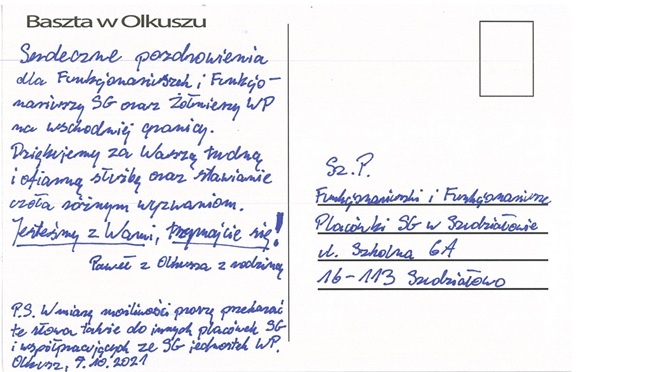 Baszta w Olkuszu
Serdeczne pozdrowienia
dla Funkcjonariuszek i Funkcjo-
nariuszy SG oraz Żołnierzy WP
na wschodniej granicy.
Dziękujemy za Waszą trudną
i ofiarną służbę oraz stawianie
czoła różnym wyzwaniom.
Jesteśmy z Wami, trzymajcie się!
Paweł z Olkusza z rodziną
P.S. W miarę możliwości proszę przekazać
te słowa także do innych placówek SG
i współpracujących ze SG jednostek WP.
Olkusz, 9.10.2021
Sz.P.
Funkcjonariuszki i Funkcjonariusze
Placówki SG w Szudziałowie
ul. Szkolna 6A
16-113 Szudziałowo